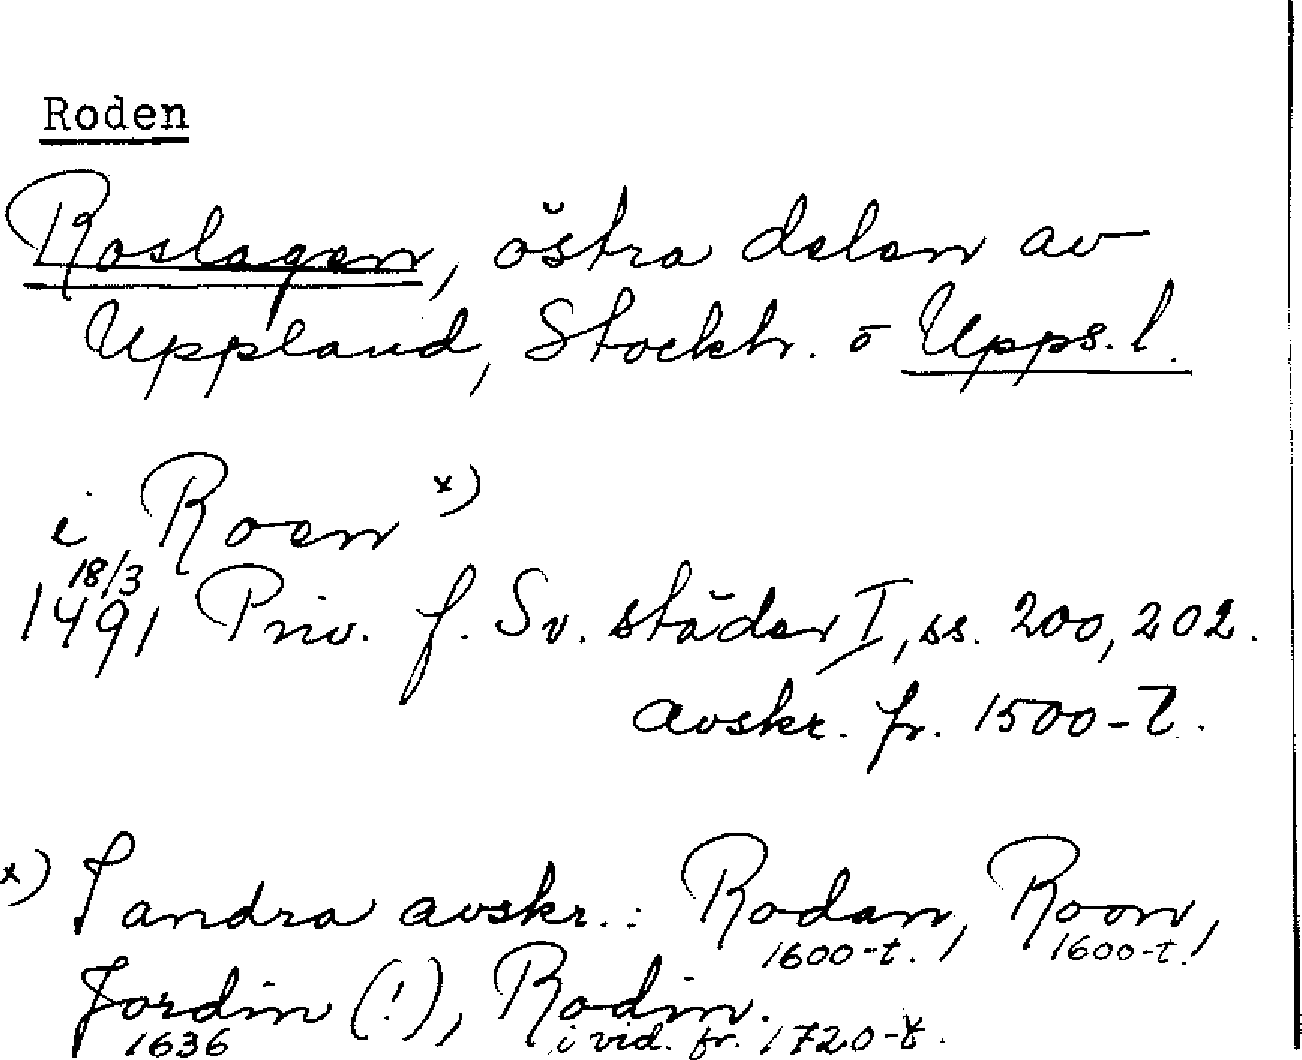 Roden
Roslagen, östra delen av
Uppland, Stockh. o Upps. l.
i Roen x)
18/3
1491 Priv. f. Sv. städer I, ss. 200, 202.
avskr. fr. 1500-t.
x) I andra avskr.: Roden, Roon,
1600-t. 1600-t.
Jordin (!), Rodin.
1636 i vid. fr. 1720-t.